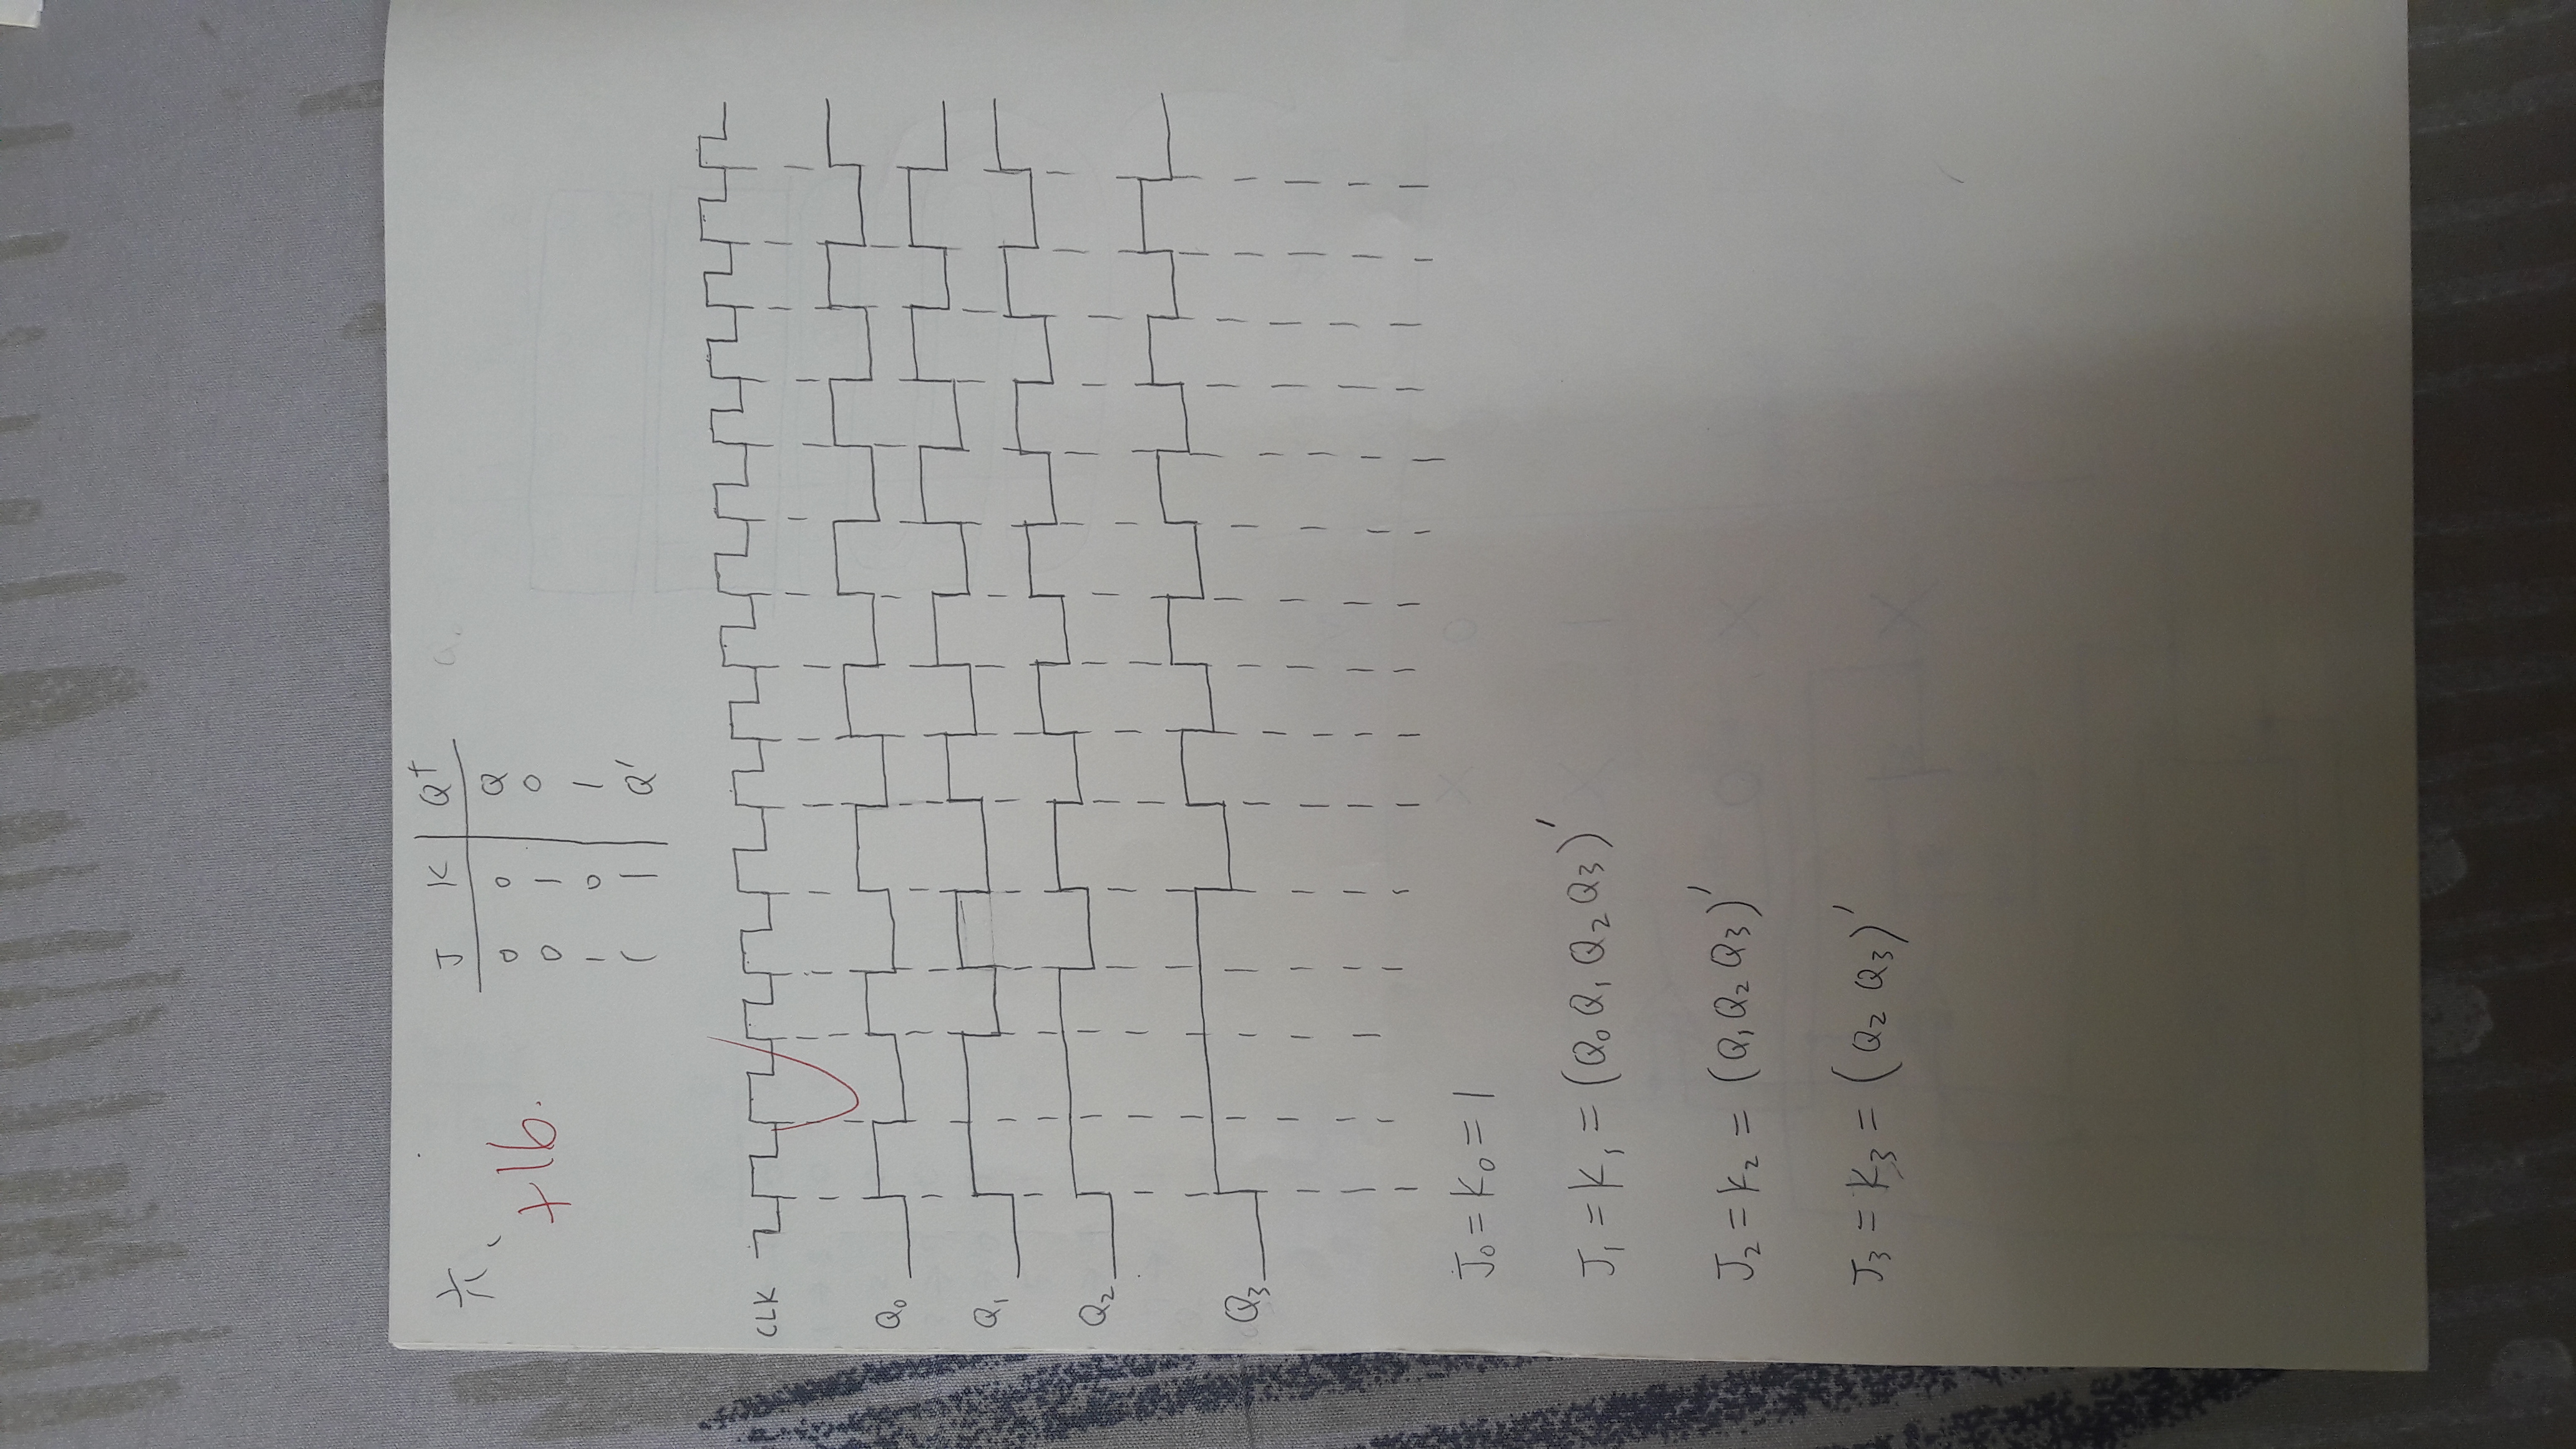 六、
+16.
J K Q⁺
0 0 Q
0 1 0
1 0 1
1 1 Q'
CLK
Q₀
Q₁
Q₂
Q₃
J₀ = K₀ = 1
J₁ = K₁ = (Q₀ Q₁ Q₂ Q₃)'
J₂ = K₂ = (Q₁ Q₂ Q₃)'
J₃ = K₃ = (Q₂ Q₃)'